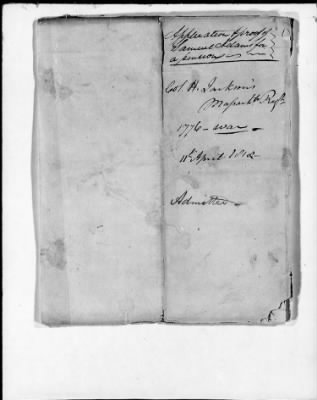 Application & proof of
Samuel Adams for
a pension
Col. H. Jackson's
Massachtts Regt
1776 - war
11th April 1818
Admitted